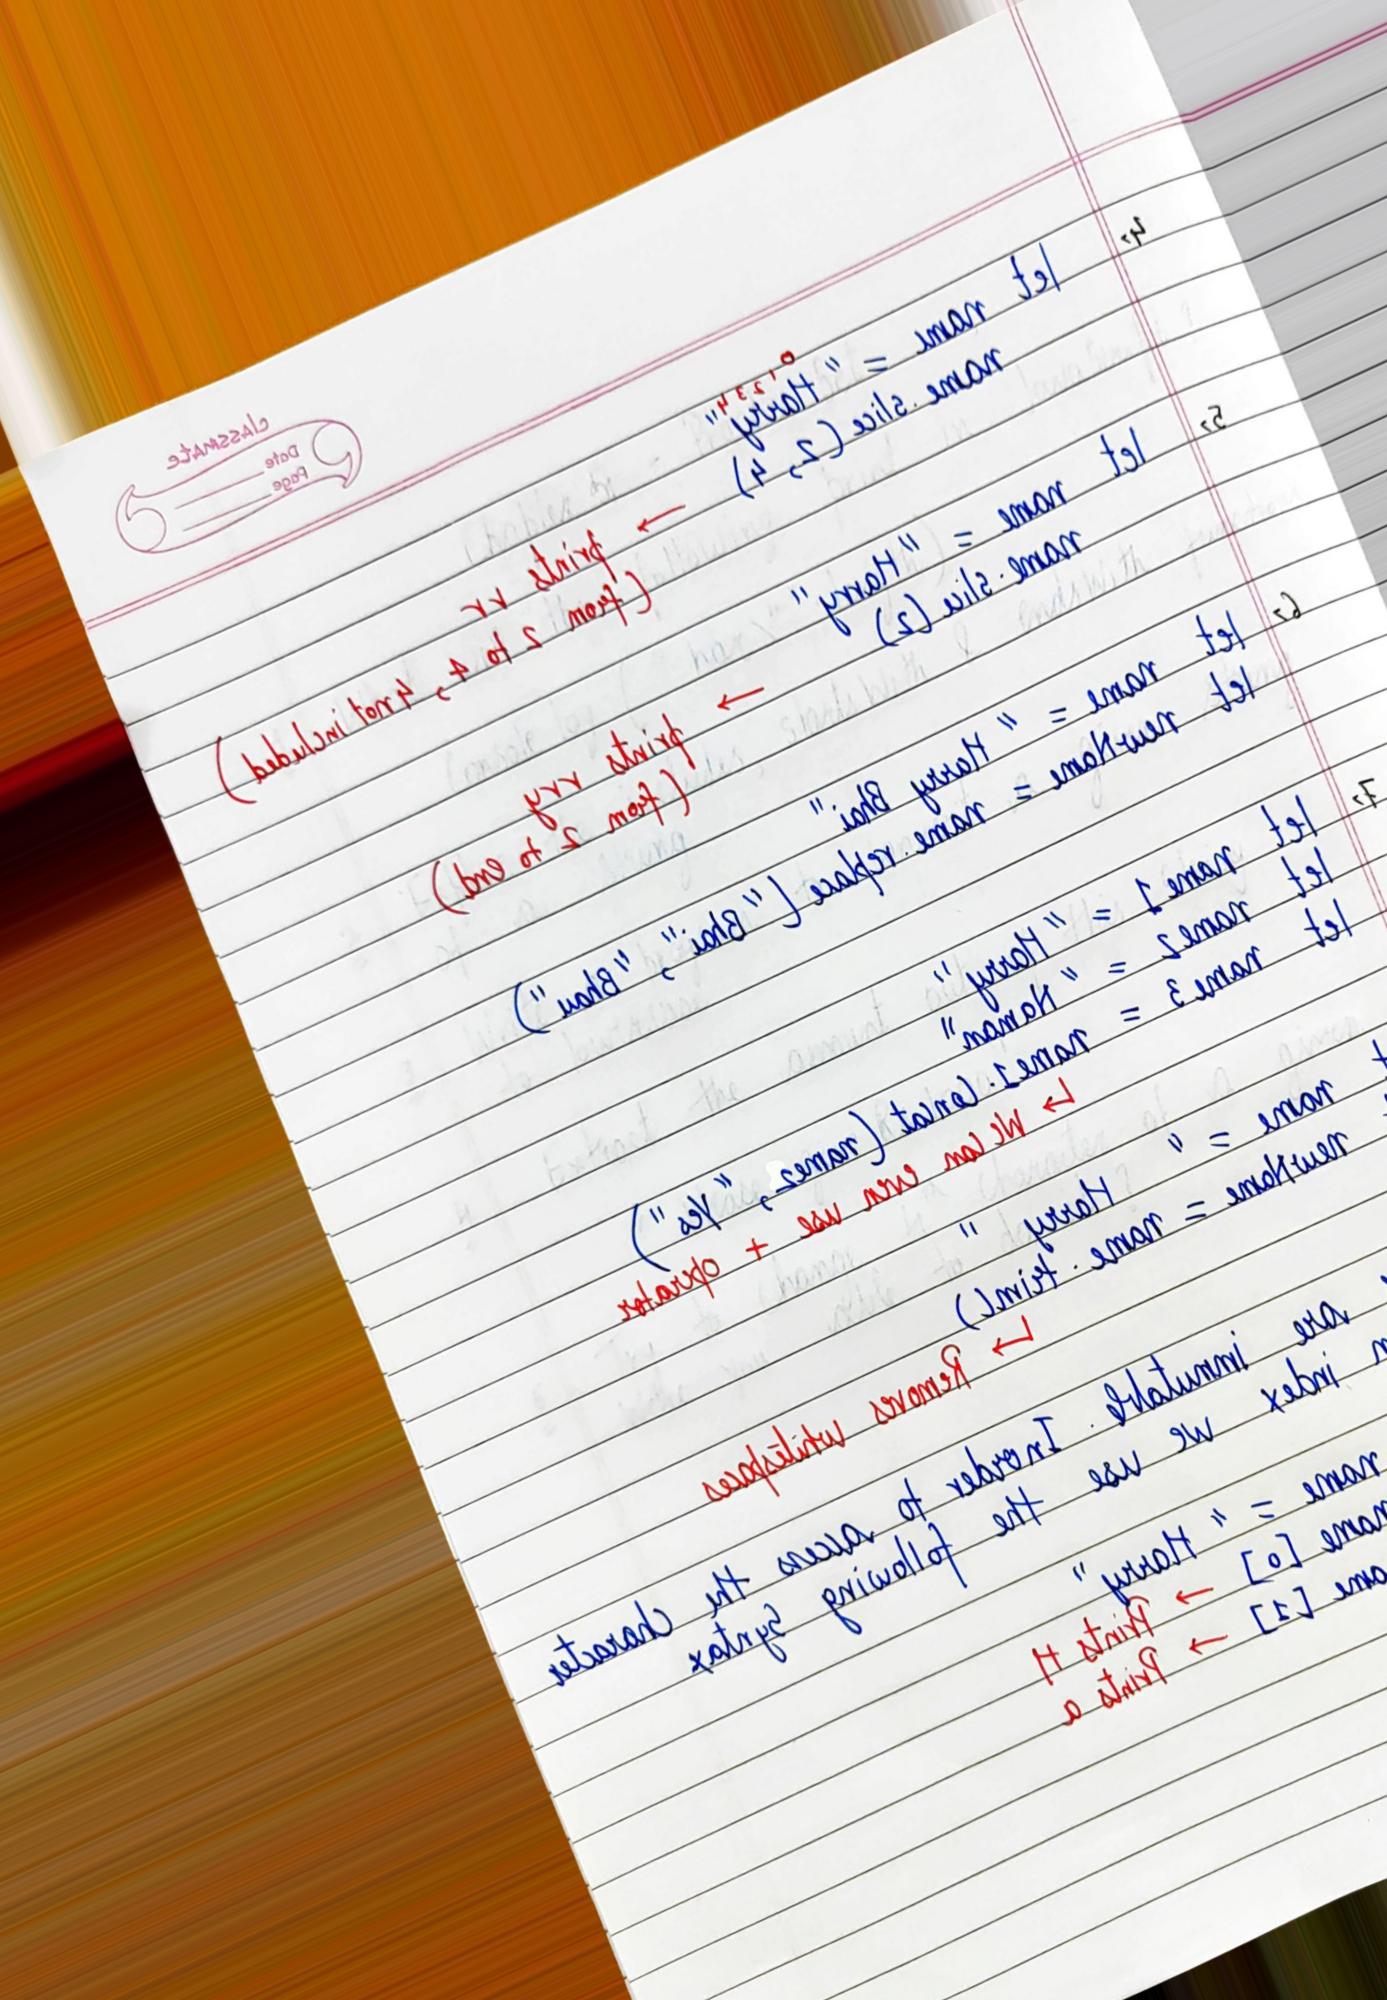 classmate
Date
Page
4, let name = "Harry"
0 1 2 3 4
name.slice(2, 4) → prints rr
(from 2 to 4, 4 not included)
5, let name = "Harry"
name.slice(2) → prints rry
(from 2 to end)
6, let name = "Harry Bhai"
let newName = name.replace("Bhai", "Bhau")
7, let name1 = "Harry"
let name2 = "Naman"
let name3 = name1.Concat(name2, "Yes")
↳ We Can even use + operator
name = " Harry "
newName = name.trim()
↳ Removes whitespaces
are immutable. Inorder to access the Character
index we use the following Syntax
name = "Harry"
name[0] → Prints H
name[1] → Prints a